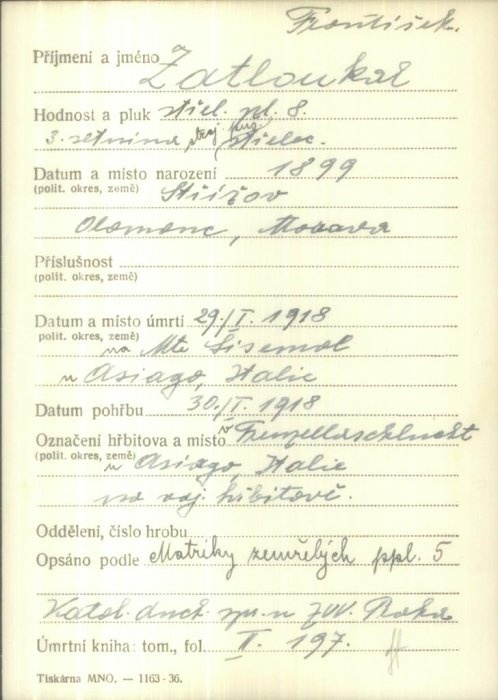 František.
Příjmení a jméno Zatloukal
Hodnost a pluk střel. pl. 8.
3. setnina, střelec.
Datum a místo narození 1899
(polit. okres, země) Střížov
Olomouc, Morava
Příslušnost
(polit. okres, země)
Datum a místo úmrtí 29./I. 1918
polit. okres, země)
na Mte Sisemol
u Asiago, Italie
Datum pohřbu 30./I. 1918
Označení hřbitova a místo v Frenzellaschlucht
(polit. okres, země) u Asiago, Italie
na voj. hřbitově.
Oddělení, číslo hrobu
Opsáno podle Matriky zemřelých ppl. 5
Katol. duch. spr. u ZVV. Praha
Úmrtní kniha: tom., fol. II. 197.
Tiskárna MNO. — 1163-36.